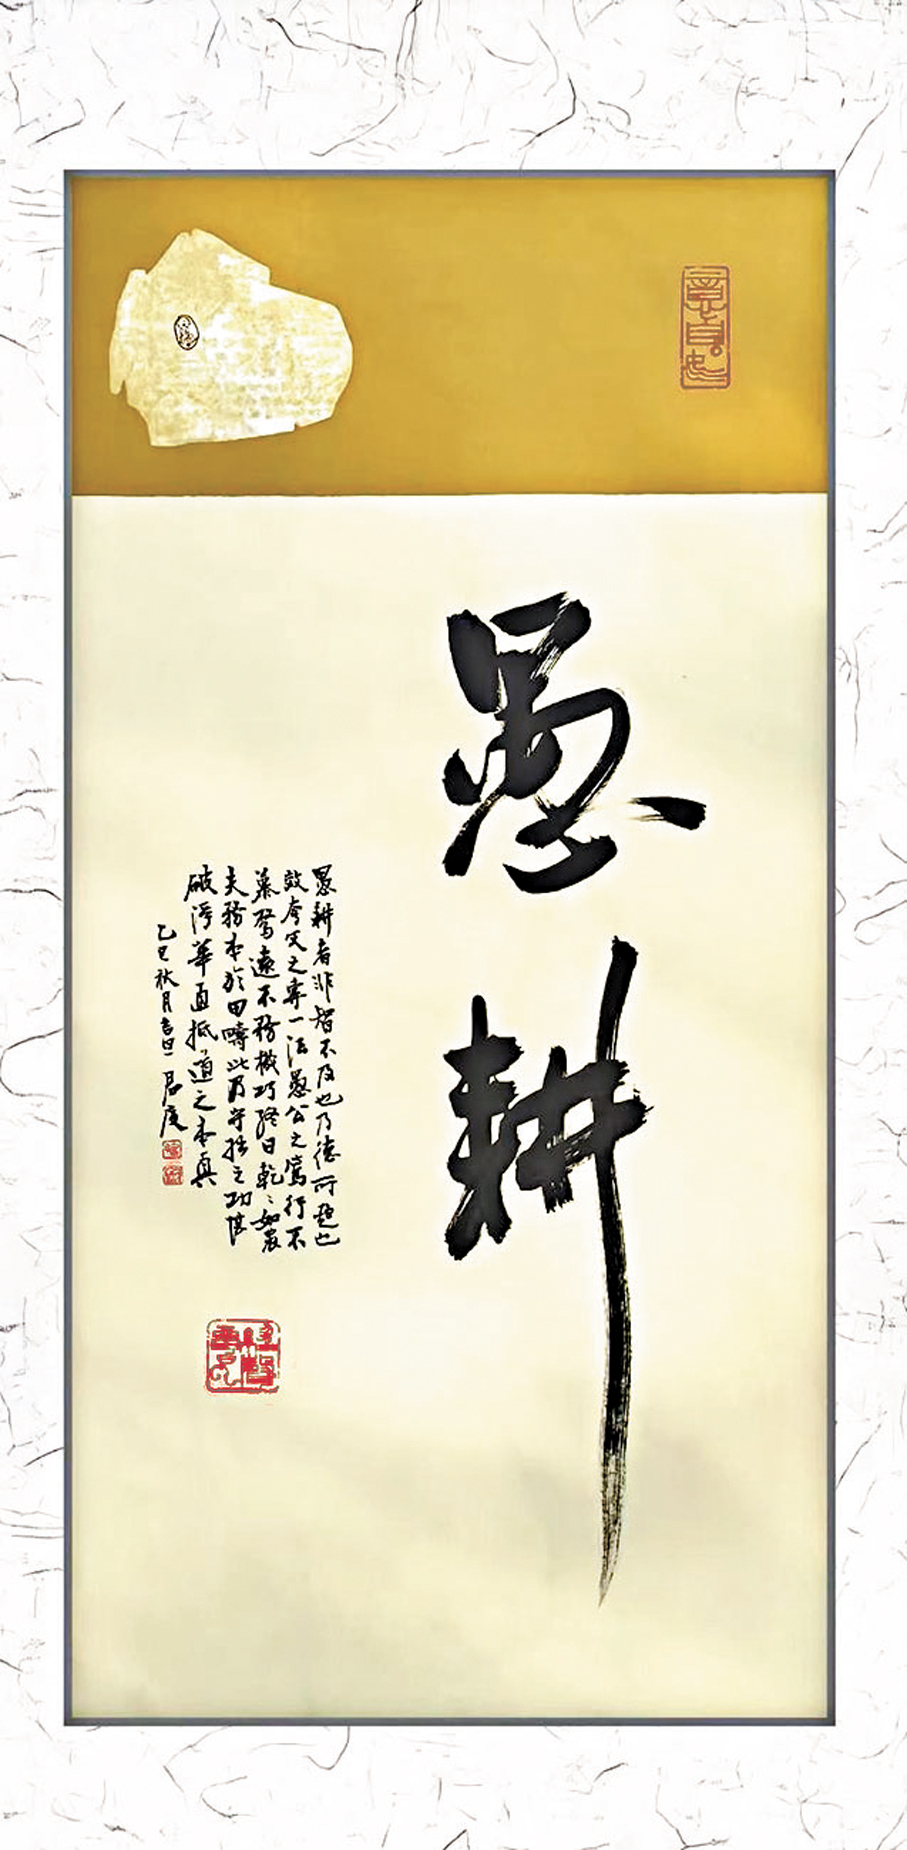 愚耕
愚耕者非智不及也乃德所趋也
效夸父之专一法愚公之笃行不
慕骛远不務機巧终日乾乾如農
夫務本於田疇此乃守拙之功堪
破浮華直抵道之本真
乙巳秋月 君度